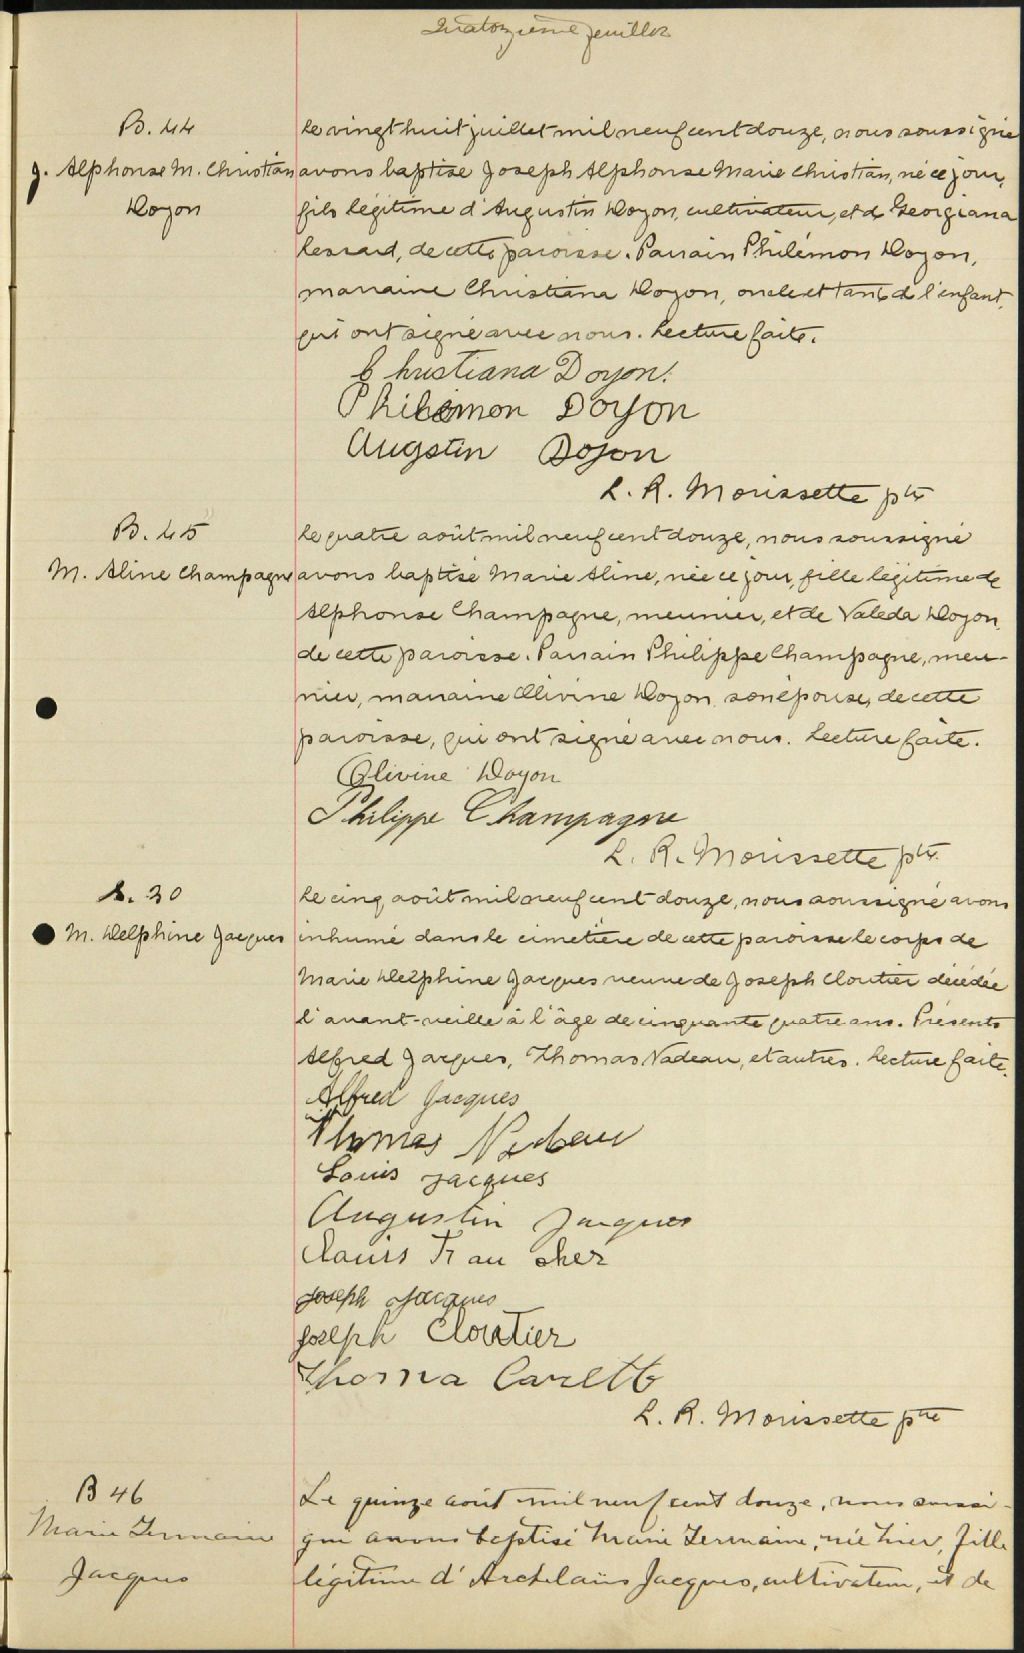 Quatorzième feuillet
B. 44
J. Alphonse M. Christian
Doyon
Le vingt huit juillet mil neuf cent douze, nous soussigné
avons baptisé Joseph Alphonse Marie Christian, né ce jour,
fils légitime d'Augustin Doyon, cultivateur, et de Georgiana
Lessard, de cette paroisse. Parrain Philémon Doyon,
marraine Christiana Doyon, oncle et tante de l'enfant,
qui ont signé avec nous. Lecture faite.
Christiana Doyon.
Philémon Doyon
Augstin Doyon
L. R. Morissette ptre
B. 45
M. Aline Champagne
Le quatre août mil neuf cent douze, nous soussigné
avons baptisé Marie Aline, née ce jour, fille légitime de
Alphonse Champagne, meunier, et de Valéda Doyon,
de cette paroisse. Parrain Philippe Champagne, meu-
nier, marraine Olivine Doyon son épouse, de cette
paroisse, qui ont signé avec nous. Lecture faite.
Olivine Doyon
Philippe Champagne
L. R. Morissette ptre
S. 30
M. Delphine Jacques
Le cinq août mil neuf cent douze, nous soussigné avons
inhumé dans le cimetière de cette paroisse le corps de
Marie Delphine Jacques veuve de Joseph Cloutier décédée
l'avant-veille à l'âge de cinquante quatre ans. Présents
Alfred Jacques, Thomas Nadeau, et autres. Lecture faite.
Alfred Jacques
Thomas Nadeau
Louis Jacques
Augustin Jacques
Joseph Jacques
Joseph Cloutier
Thoma
L. R. Morissette ptre
B 46
Marie Germaine
Jacques
Le quinze août mil neuf cent douze, nous soussi-
gné avons baptisé Marie Germaine, née hier, fille
légitime d'Archelaüs Jacques, cultivateur, et de